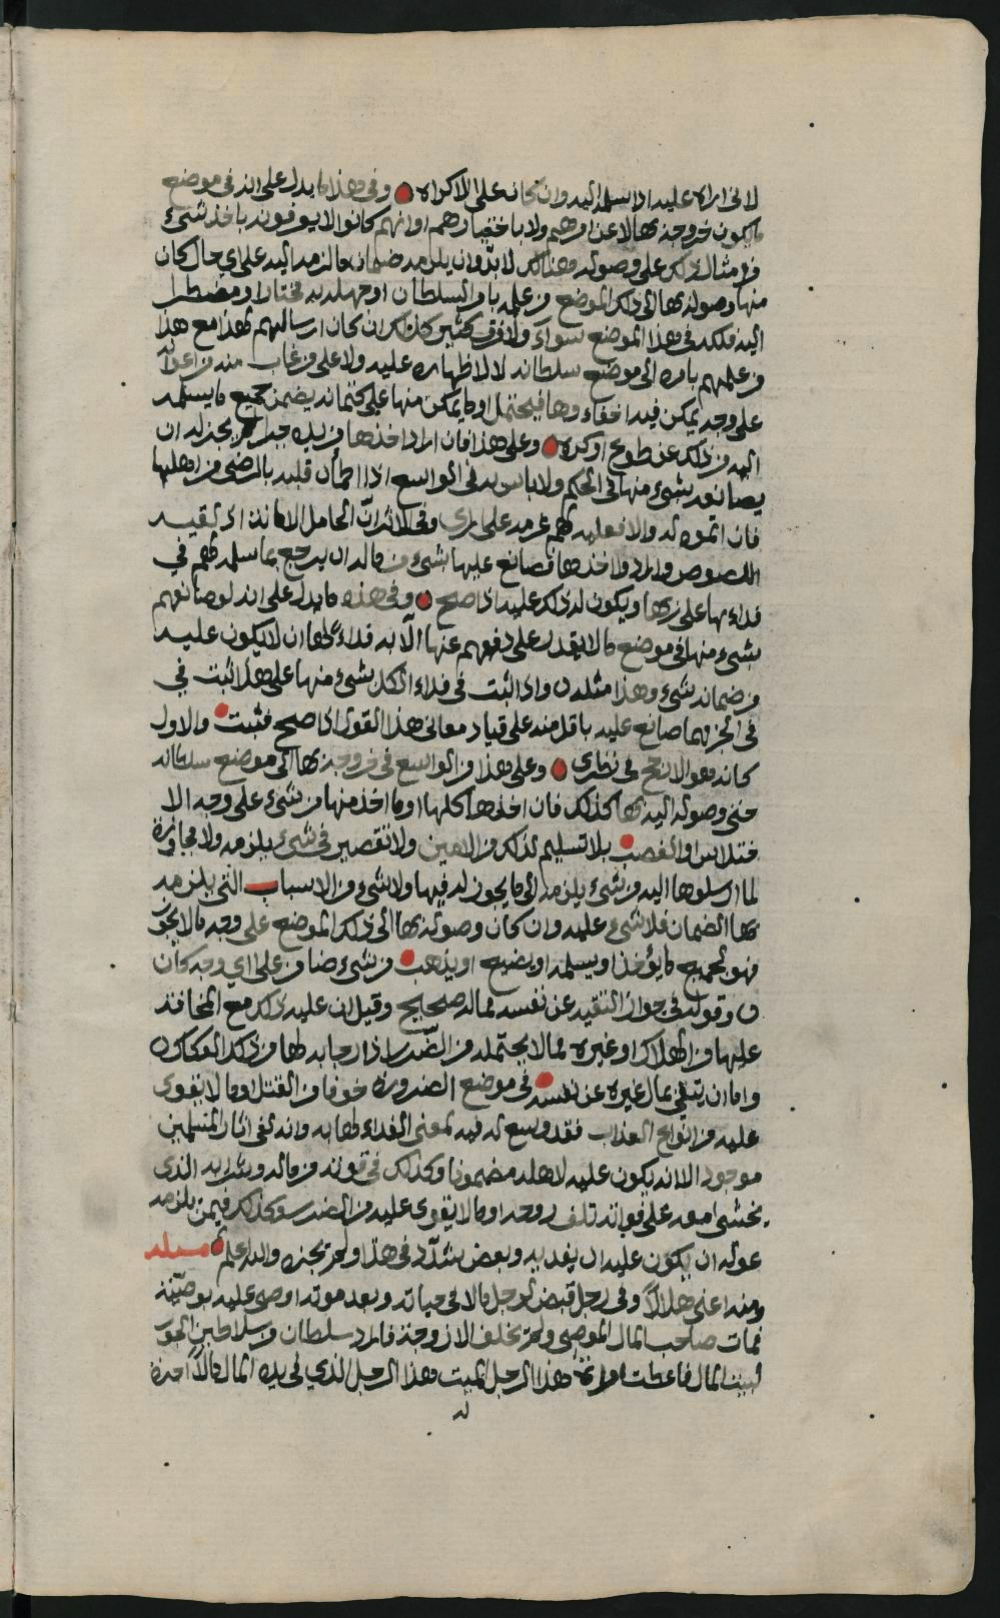 لاني اراه عليه اذا سلمه اليه وان كان على الاكراه وفي هذا ما يدل على انه في موضع
ما يكون خروجه بها لا عن امرهم ولا باختيارهم او انهم كانوا لا يعرفونه باخذ شيء
من امثال ذلك على وصوله هنالك لا بد وان يلزمه ضمان ما لزمه اليه على اي حال كان
منها وصوله بها الى ذلك الموضع من علمه بامر السلطان او جهله به مختارا او مضطرا
اليه فذلك في هذا الموضع سواء ولا فرق كذلك ان كان ارسالهم لهذا مع هذا
من علمهم بامره الى موضع سلطانه لا لاظهاره عليه ولا على من غاب منه من اعوانه
على وجه يمكن فيه اخفاءوها فيحتمل او ما يمكن منها على كتمانه يضمن جميع ما يسلمه
اليه من ذلك عن طوع او كره وعلى هذا فان اراد اخذها من يده جبرا لم يجز له ان
يصانعه بشيء منها في الحكم ولا باس به في الواسع اذا اطمأن قلبه بالرضى من اهلها
فان اتموه له والا فعليه لهم غرمه على راي وفي الاثر ان الحامل الامانة اذا لقيه
اللصوص وارادوا اخذها فصانع عليها بشيء من ماله ان يرجع بما سلمه لهم في
فداءها على ربها ويكون له ذلك عليه اذا صح وفي هذه ما يدل على انه لو صانعهم
بشيء منها في موضع ما لا يقدر على دفعهم عنها الا به فداء لها ان لا يكون عليه
من ضمانه شيء وهذا مثله واذا ثبت في فداء الكل بشيء منها على هذا ثبت في
في الجزء مما صانع عليه باقل منه على قياد معاني هذا القول اذا صح فثبت والاول
كانه هو الارجح في نظري وعلى هذا من الواسع في خروجه بها الى موضع سلطانه
حتى وصوله اليه بها كذلك فان اخذها كلها او ما اخذ منها من شيء على وجه الا
ختلاس او الغصب بلا تسليم لذلك من الامين ولا تقصير في شيء يلزمه ولا مجاوزة
لما ارسلوها اليه من شيء يلزمه الى ما يجوز له فيها ولا شيء من الاسباب التي يلزمه
بها الضمان فلا شيء عليه وان كان وصوله بها الى ذلك الموضع على وجه ما لا يجوز
فهو لجميع ما يؤخذ او يسلمه او يضيع او يذهب من شيء ضامن على اي وجه كان
وقوله في جواز التقيه عن نفسه بماله صحيح وقيل ان عليه ذلك مع المخافة
عليها من الهلاك او غيره مما لا يحتمله من الضرر اذا رجا به لها من ذلك الفكاك
واما ان يتقي بمال غيره عن نفسه في موضع الضرورة خوفا من القتل او ما لا يقوى
عليه من انواع العذاب فقد وسع له فيه لمعنى الفداء لها به وانه لفي اثار المسلمين
موجود الا انه يكون عليه لاهله مضمونا وكذلك في قوته من ماله وشرابه الذي
يخشى معه على فواته تلف روحه او ما لا يقوى عليه من الضرر وكذلك فيمن يلزمه
عوله ان يكون عليه ان يفديه وبعض شدد في هذا ولم يجزه والله اعلم مسئله
ومنه اعني هلالا وفي رجل قبض لرجل مالا في حياته وبعد موته اوصى عليه بوصيته
فمات صاحب المال الموصي ولم يخلف الا زوجة فاراد سلطان من سلاطين الجور
لبيت المال فاعطت امراة هذا الرجل الميت هذا الرجل الذي في يده المال مالا اخذه
له